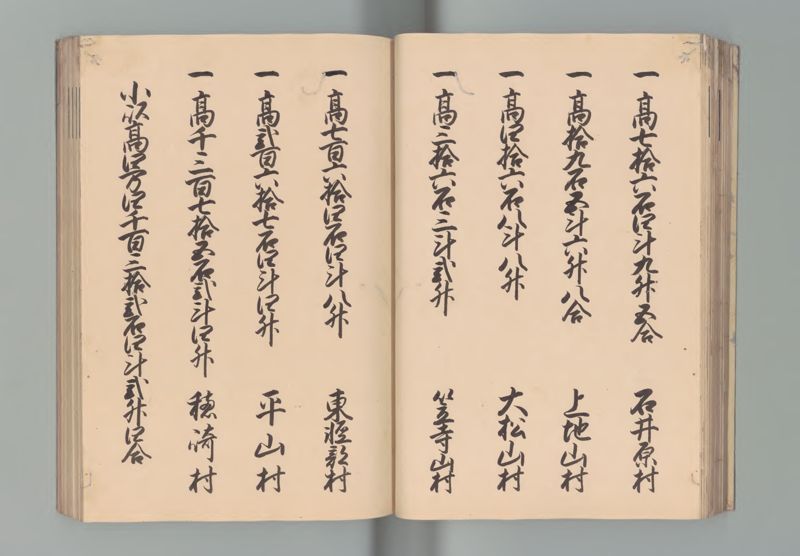 一 髙七拾六石四斗九升五合 石井原村
一 髙拾九石五斗六升八合 上地山村
一 髙四拾六石八斗八升 大松山村
一 髙三拾六石三斗弐升 笠寺山村
一 髙七百六拾四石四斗八升 東軽部村
一 髙弐百六拾七石四斗四升 平山村
一 髙千三百七拾五石弐斗四升 穂崎村
小以髙四万四千百三拾弐石四斗弐升四合